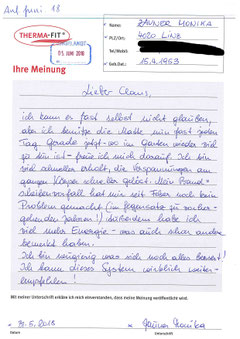 Anf. Juni. 18
Name: ZAUNER MONIKA
THERMA-FIT®
PLZ/Ort: 4020 LINZ
Tel./Mobil:
EINGELANGT
05. JUNI 2018
Geb.Dat.: 15.4.1963
Ihre Meinung
Lieber Claus,
ich kann es fast selbst nicht glauben,
aber ich benütze die Matte nun fast jeden
Tag. Gerade jetzt - wo im Garten wieder viel
zu tun ist - freue ich mich darauf. Ich bin
viel schneller erholt, die Verspannungen am
ganzen Körper schneller gelöst. Mein Band-
scheibenvorfall hat mir seit Feber noch kein
Problem gemacht (im Gegensatz zu vorher-
gehenden Jahren!) Außerdem habe ich
viel mehr Energie - was auch schon andere
bemerkt haben.
Ich bin neugierig was sich noch alles bessert!
Ich kann dieses System wirklich weiter-
empfehlen!
Mit meiner Unterschrift erkläre ich mich einverstanden, dass meine Meinung veröffentlicht wird.
x 30.5.2018 x Zauner Monika
Datum Unterschrift